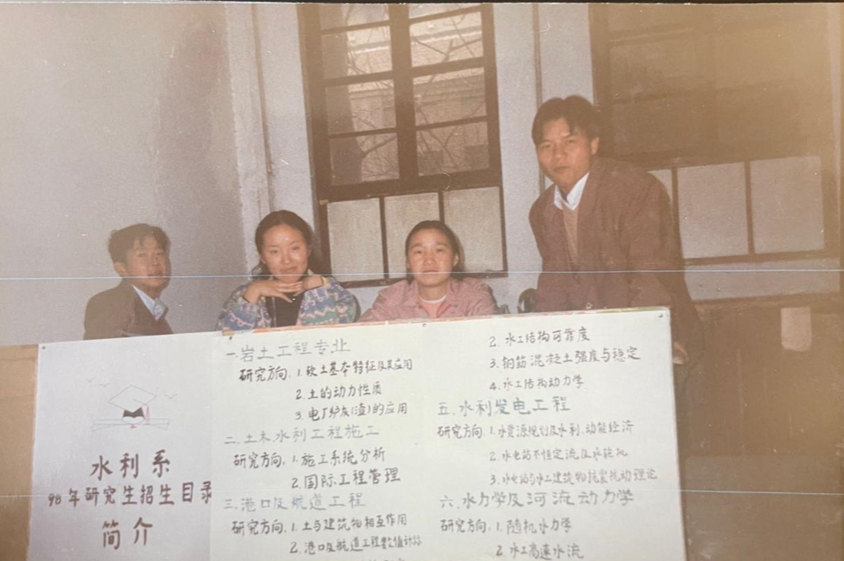 水利系
98年研究生招生目录
简介
一.岩土工程专业
研究方向,1.软土基本特征及其应用
2.土的动力性质
3.电厂炉灰(渣)的应用
二.土木水利工程施工
研究方向,1.施工系统分析
2.国际工程管理
三.港口及航道工程
研究方向,1.土与建筑物相互作用
2.港口及航道工程数值计
2.水工结构可靠度
3.钢筋混凝土强度与稳定
4.水工结构动力学
五.水利发电工程
研究方向,1.水资源规划及水利、动能经济
2.水电站不恒定流及水轮机
3.水电站与水工建筑物抗震抗动理论
六.水力学及河流动力学
研究方向,1.随机水力学
2.水工高速水流